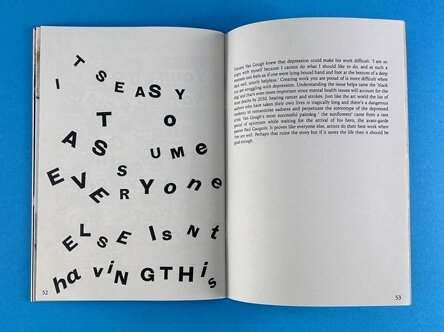 ITSEASY
TO
ASSUMe
EVERYone
ELSE Isnt
havINGTHis
52
Vincent Van Gough knew that depression could make his work difficult. 'I am so
angry with myself because I cannot do what I should like to do, and at such a
moment one feels as if one were lying bound hand and foot at the bottom of a deep
dark well, utterly helpless.' Creating work you are proud of is more difficult when
you are struggling with depression. Understanding the issue helps tame the 'black
dog' and that's even more important since mental health issues will account for the
most deaths by 2030, beating cancer and strokes. Just like art world the list of
writers who have taken their own lives is tragically long and there's a dangerous
tendency to romanticise sadness and perpetuate the stereotype of the depressed
artist. Van Gough's most successful painting ' the sunflowers' came from a rare
period of optimism while waiting for the arrival of his hero, the avant-garde
painter Paul Gauguin. It proves like everyone else, artists do their best work when
they are well. Perhaps that ruins the story but if it saves the life then it should be
good enough.
53